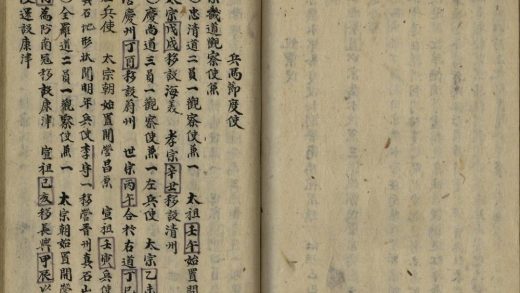 兵馬節度使
京畿道觀察使兼
○忠清道二員一觀察使兼一 太祖壬午始置開
太宗戊戌移設海義 孝宗辛丑移設清州
○慶尚道三員一觀察使兼一左兵使 太宗乙未
慶州丁酉移設蔚州 世宗丙午合於右道丁巳
兵使 太宗朝始置開營昌原 宣祖壬寅兵使
石地形狀聞明年兵使李守一移營晋州真石山
○全羅道二員一觀察使兼一 太宗朝始置開營
爲防南寇移設康津 宣祖己亥移長興甲辰
還設康津